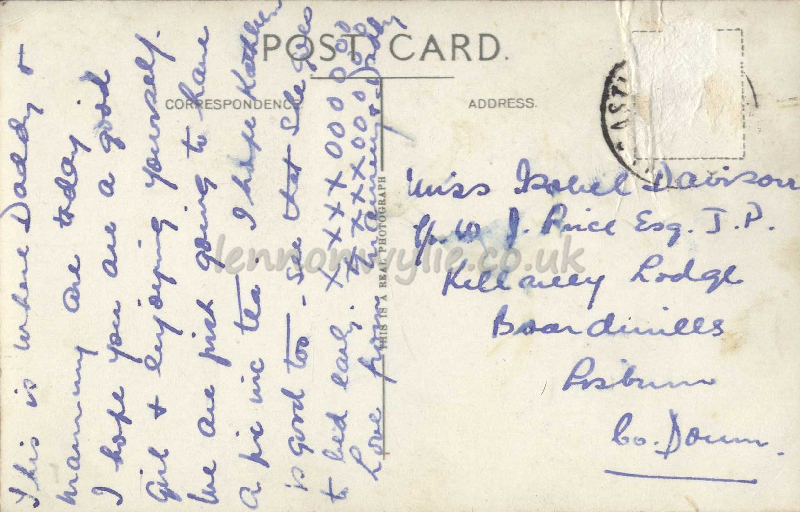 POST CARD.
CORRESPONDENCE.
ADDRESS.
This is where Daddy &
mammy are today
I hope you are a good
girl & enjoying yourself.
We are just going to have
a pic inc tea. I hope Kathleen
is good too - See that She goes
to bed early. X X X X O O O O O O
Love from Mammy & Daddy
THIS IS A REAL PHOTOGRAPH
Miss Isobel Davison
c/o W J. Price Esq. J.P.
Lodge
Boardmills
Lisburn
Co. Down.
lennonwylie.co.uk